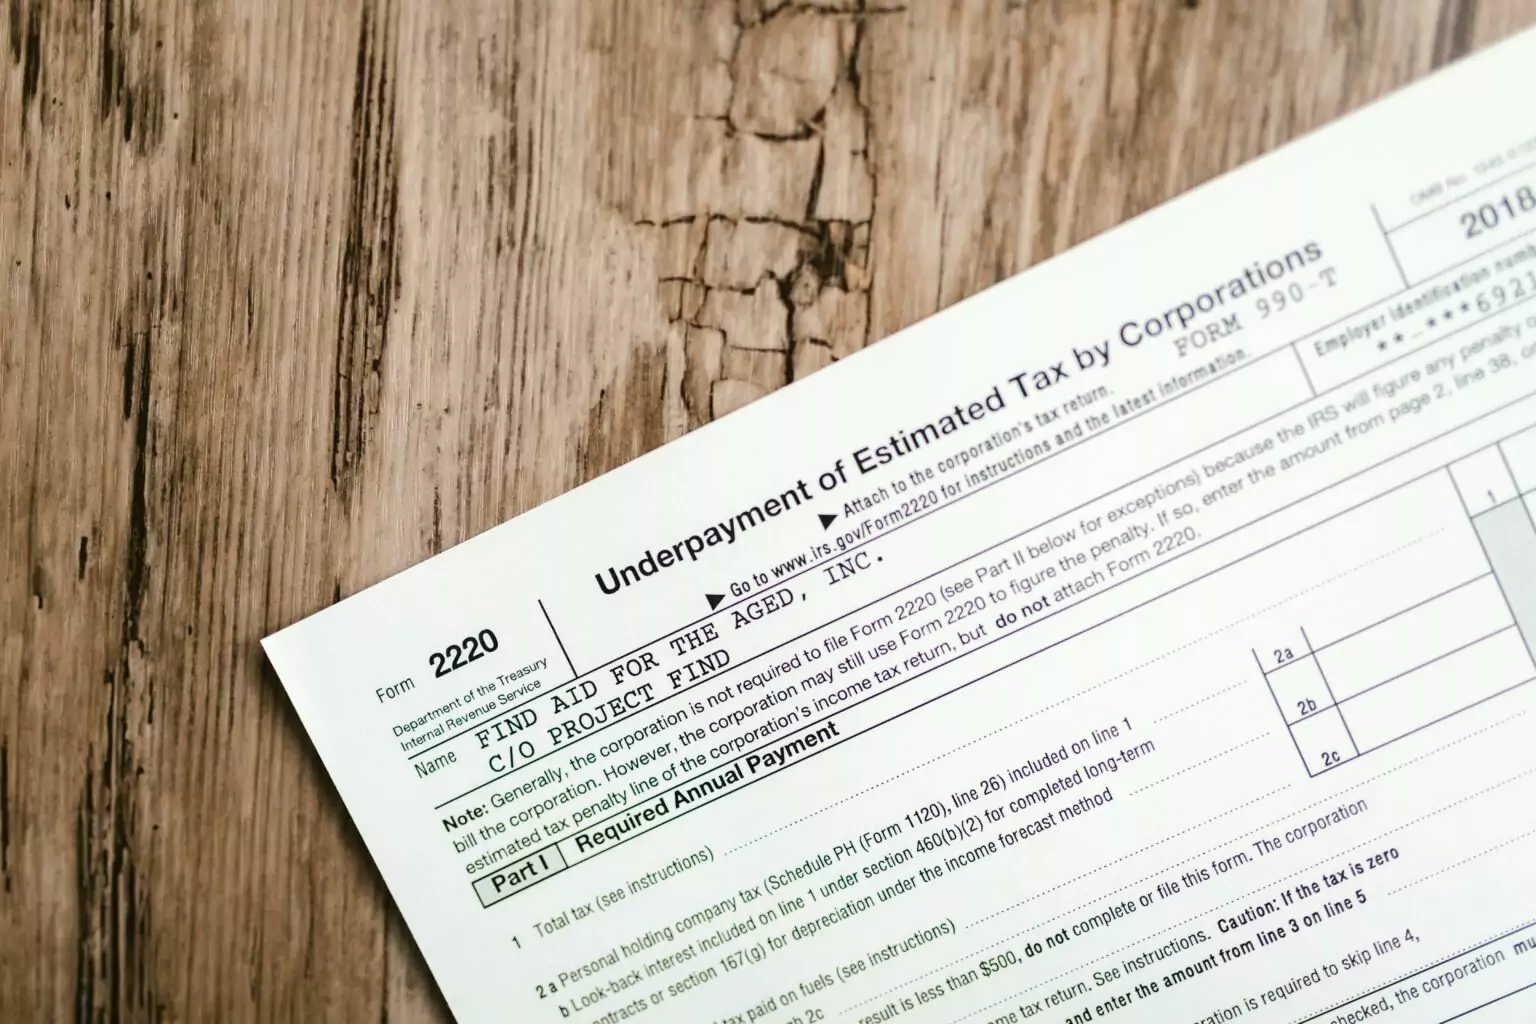 OMB No. 1545-0123
2018
Form 2220
Underpayment of Estimated Tax by Corporations
FORM 990-T
Department of the Treasury
Internal Revenue Service
▶ Attach to the corporation's tax return.
▶ Go to www.irs.gov/Form2220 for instructions and the latest information.
Name
Employer identification
FIND AID FOR THE AGED, INC.
C/O PROJECT FIND
**-***692
Note: Generally, the corporation is not required to file Form 2220 (see Part II below for exceptions) because the IRS will figure any penalty
bill the corporation. However, the corporation may still use Form 2220 to figure the penalty. If so, enter the amount from page 2, line 38,
estimated tax penalty line of the corporation's income tax return, but do not attach Form 2220.
Part I Required Annual Payment
1 Total tax (see instructions) 1
2 a Personal holding company tax (Schedule PH (Form 1120), line 26) included on line 1 2a
b Look-back interest included on line 1 under section 460(b)(2) for completed long-term
or section 167(g) for depreciation under the income forecast method 2b
tax paid on fuels (see instructions) 2c
2c
result is less than $500, do not complete or file this form. The corporation
tax return. See instructions. Caution: If the tax is zero
and enter the amount from line 3 on line 5
is required to skip line 4,
checked, the corporation